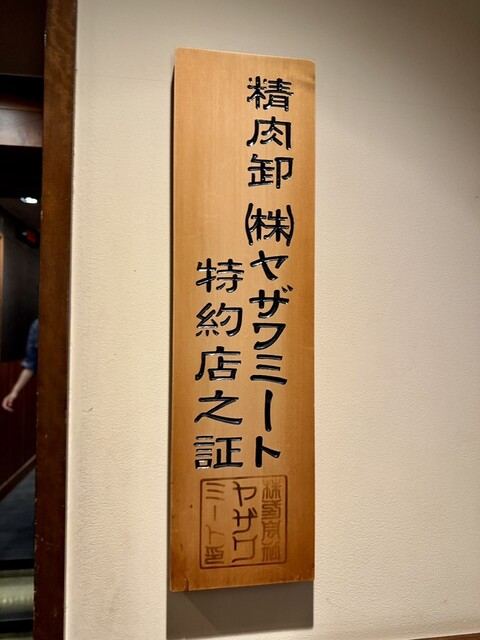 精肉卸(株)ヤザワミート
特約店之証
株式会社
ヤザワ
ミート印